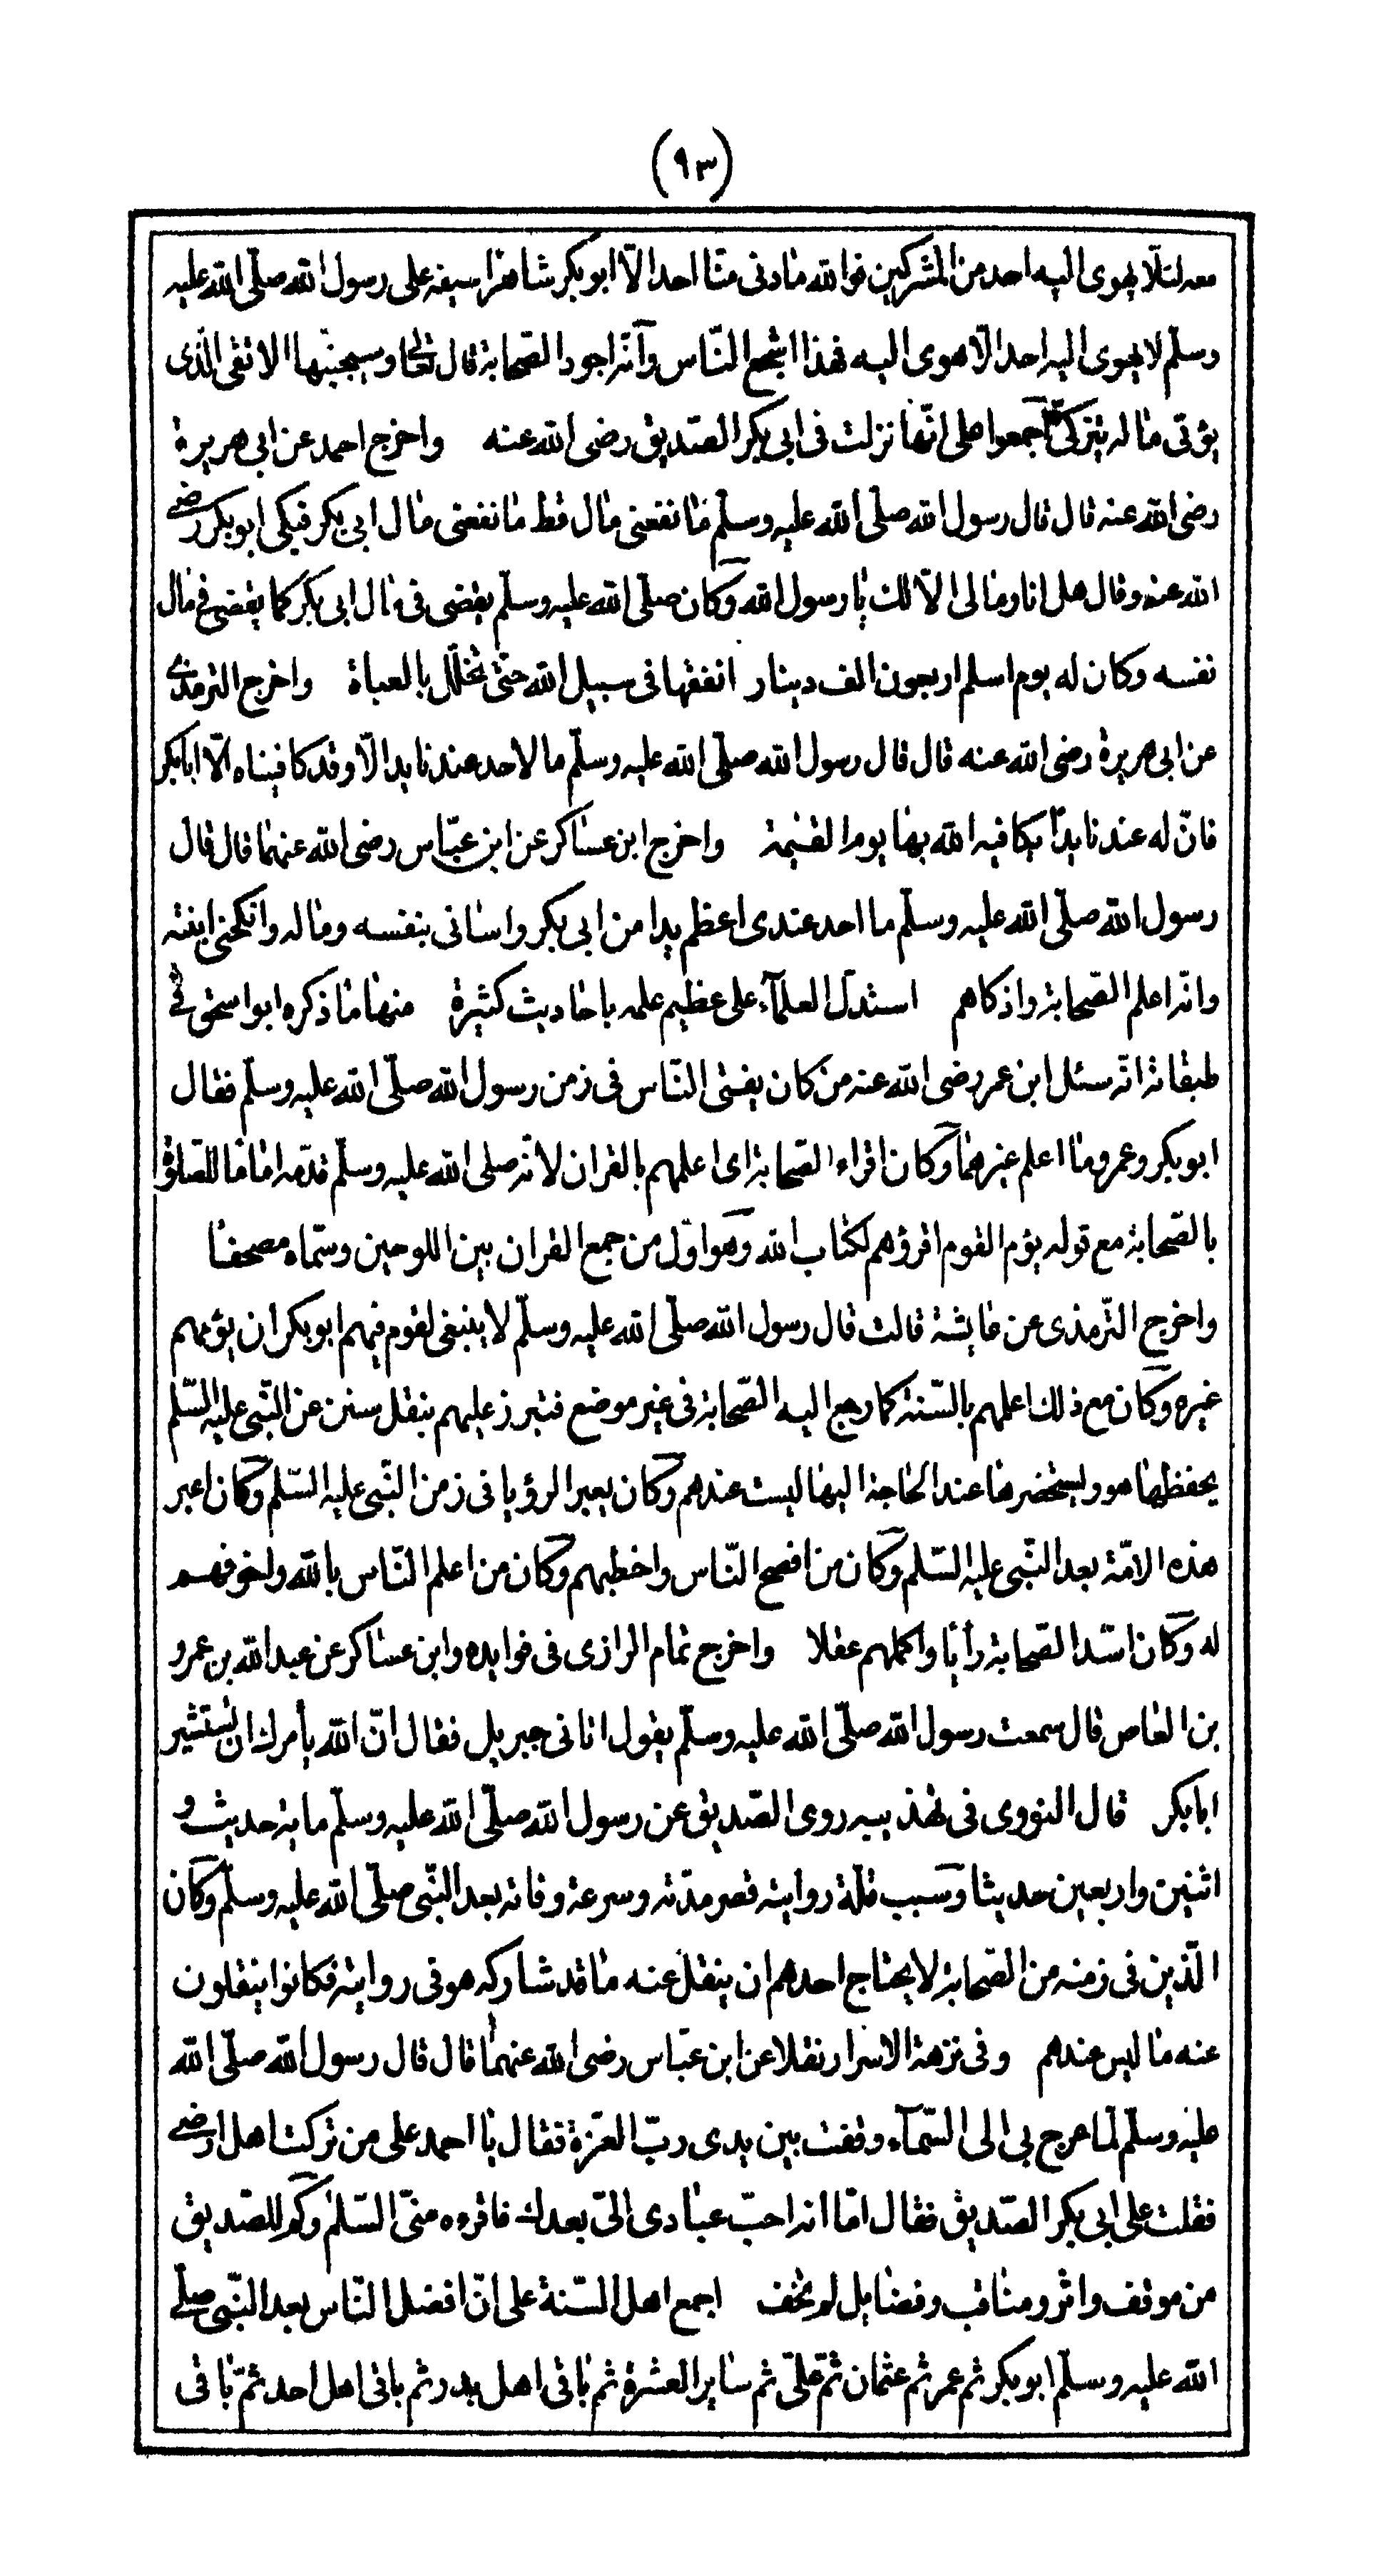 (٩٣)
معه لئلّا يهوى اليه احد من المشركين فوالله مادنى منّا احد الّا ابو بكر شاهرًا سيفه على رسول الله صلّى الله عليه
وسلّم لا يهوى اليه احد الّا هوى اليه فهذا اشجع النّاس وأنّه اجود الصّحابة قال تعالى وسيجنّبها الاتقى الّذى
يؤتى ماله يتزكّى اجمعوا على انّها نزلت فى ابى بكر الصّديق رضى الله عنه واخرج احمد عن ابى هريرة
رضى الله عنه قال قال رسول الله صلّى الله عليه وسلّم مَا نفعنى مَال قط مَا نفعنى مَال ابى بكر فبكى ابو بكر رضى
الله عنه وقال هل انا ومالى الّا لك يا رسول الله وكان صلّى الله عليه وسلّم يقضى فى مال ابى بكر كما يقضى فى مال
نفسه وكان له يوم اسلم اربعون الف دينار انفقها فى سبيل الله حتّى تخلّل بالعباة واخرج الترمذى
عن ابى هريرة رضى الله عنه قال قال رسول الله صلّى الله عليه وسلّم ما لاحد عندنا يد الّا وقد كافيناه الّا ابا بكر
فانّ له عندنا يدًا يكافيه الله بها يوم القيٰمة واخرج ابن عسَاكر عن ابن عبّاس رضى الله عنهمَا قال قال
رسول الله صلّى الله عليه وسلّم ما احد عندى اعظم يدا من ابى بكر واسَانى بنفسه ومَاله وانكحنى ابنته
وانّه اعلم الصّحابة واذكاهم استدلّ العلمآء على عظيم علمه باحَاديث كثيرة منهَا مَا ذكره ابو اسحق فى
طبقاته انّه سئل ابن عمر رضى الله عنه من كان يفتى النّاس فى زمن رسول الله صلّى الله عليه وسلّم فقال
ابو بكر وعمر ومَا اعلم غيرهمَا وكان اقراء الصّحابة اى اعلمهم بالقران لانّه صلى الله عليه وسلّم قدّمه امَامًا للصّلوة
بالصّحابة مع قوله يؤم القوم اقرؤهم لكتاب الله وهو اوّل من جمع القران بين اللوحين وسمّاه مصحفًا
واخرج التّرمذى عن عَايشة قالت قال رسول الله صلّى الله عليه وسلّم لا ينبغى لقوم فيهم ابو بكر ان يؤمهم
غيره وكان مع ذلك اعلمهم بالسّنة كما رجع اليه الصّحابة فى غير موضع فتبرز عليهم بنقل سنن عن النّبى عليه السّلم
يحفظهَا هو ويستحضرهَا عند الحَاجة اليهَا ليست عندهم وكان يعبر الرؤيا فى زمن النّبى عليه السّلم وكان اعبر
هذه الامّة بعد النّبى عليه السّلم وكان من افصح النّاس واخطبهم وكان من اعلم النّاس بالله واخوفهم
له وكان اسّد الصّحابة رأيًا واكملهم عقلا واخرج تمام الرازى فى فوايده وابن عسَاكر عن عبد الله بن عمرو
بن العَاص قال سمعت رسول الله صلّى الله عليه وسلّم يقول اتانى جبريل فقال انّ الله يأمرك ان تستشير
ابا بكر قال النووى فى تهذيبه روى الصّديق عن رسول الله صلّى الله عليه وسلّم ماية حديث و
اثنين واربعين حديثا وسبب قلّة روايته قصر مدّته وسرعة وفاته بعد النّبى صلّى الله عليه وسلّم وكان
الّذين فى زمنه من الصّحابة لا يحتاج احدهم ان ينقل عنه مَا قد شاركه هو فى روايته فكانوا ينقلون
عنه مَا ليس عندهم وفى نزهة الاسرار نقلا عن ابن عبّاس رضى الله عنهمَا قال قال رسول الله صلّى الله
عليه وسلّم لما عرج بى الى السّمآء وقفت بين يدى ربّ العزّة فقال يَا احمد على من تركت اهل ارضى
فقلت على ابى بكر الصّديق فقال امّا انه احبّ عبَادى الىّ بعدك فاقرءه منّى السّلم وكم للصّديق
من موقف واثر ومنَاقب وفضَايل لم تخف اجمع اهل السّنة على انّ افضل النّاس بعد النّبى صلّى
الله عليه وسلّم ابو بكر ثم عمر ثم عثمان ثمّ علىّ ثم سَاير العشرة ثم بَاقى اهل بدر ثم باقى اهل احد ثمّ بَاقى